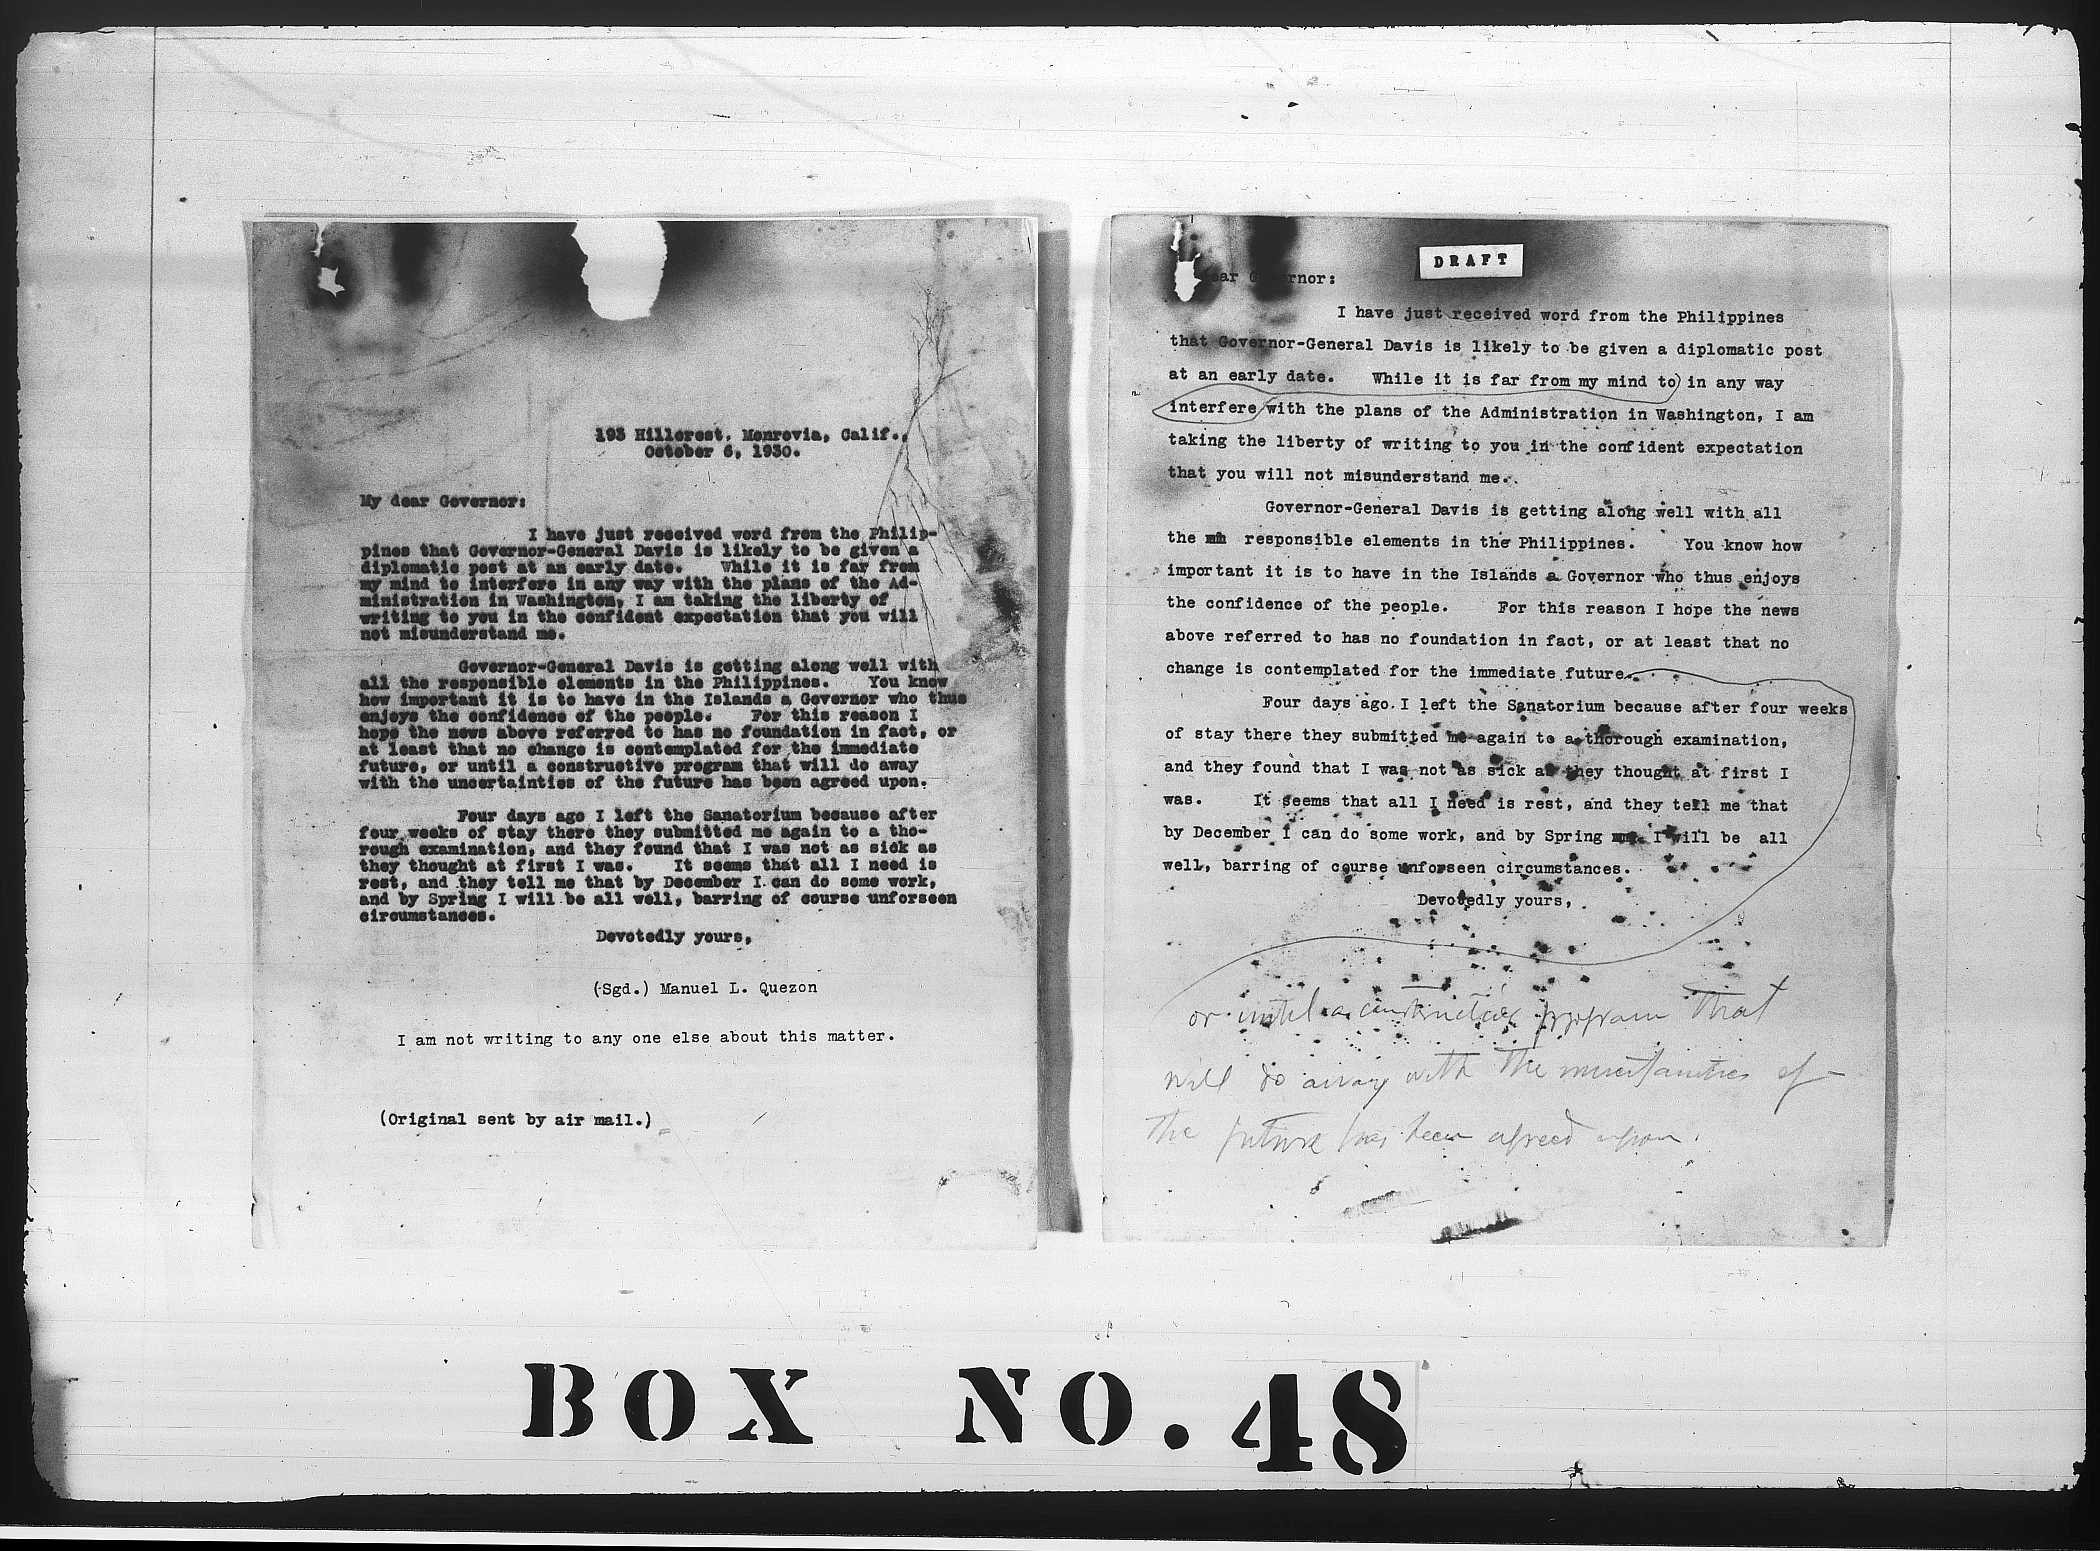 193 Hillcrest, Monrovia, Calif.,
October 6, 1930.
My dear Governor:
I have just received word from the Philip-
pines that Governor-General Davis is likely to be given a
diplomatic post at an early date. While it is far from
my mind to interfere in any way with the plans of the Ad-
ministration in Washington, I am taking the liberty of
writing to you in the confident expectation that you will
not misunderstand me.
Governor-General Davis is getting along well with
all the responsible elements in the Philippines. You know
how important it is to have in the Islands a Governor who thus
enjoys the confidence of the people. For this reason I
hope the news above referred to has no foundation in fact, or
at least that no change is contemplated for the immediate
future, or until a constructive program that will do away
with the uncertainties of the future has been agreed upon.
Four days ago I left the Sanatorium because after
four weeks of stay there they submitted me again to a tho-
rough examination, and they found that I was not as sick as
they thought at first I was. It seems that all I need is
rest, and they tell me that by December I can do some work,
and by Spring I will be all well, barring of course unforseen
circumstances.
Devotedly yours,
(Sgd.) Manuel L. Quezon
I am not writing to any one else about this matter.
(Original sent by air mail.)
DRAFT
ear G rnor:
I have just received word from the Philippines
that Governor-General Davis is likely to be given a diplomatic post
at an early date. While it is far from my mind to in any way
interfere with the plans of the Administration in Washington, I am
taking the liberty of writing to you in the confident expectation
that you will not misunderstand me.
Governor-General Davis is getting along well with all
the responsible elements in the Philippines. You know how
important it is to have in the Islands a Governor who thus enjoys
the confidence of the people. For this reason I hope the news
above referred to has no foundation in fact, or at least that no
change is contemplated for the immediate future.
Four days ago I left the Sanatorium because after four weeks
of stay there they submitted me again to a thorough examination,
and they found that I was not as sick as they thought at first I
was. It seems that all I need is rest, and they tell me that
by December I can do some work, and by Spring I will be all
well, barring of course unforseen circumstances.
Devotedly yours,
or until a constructive program that
will do away with the uncertainties of
the future has been agreed upon.
BOX NO. 48